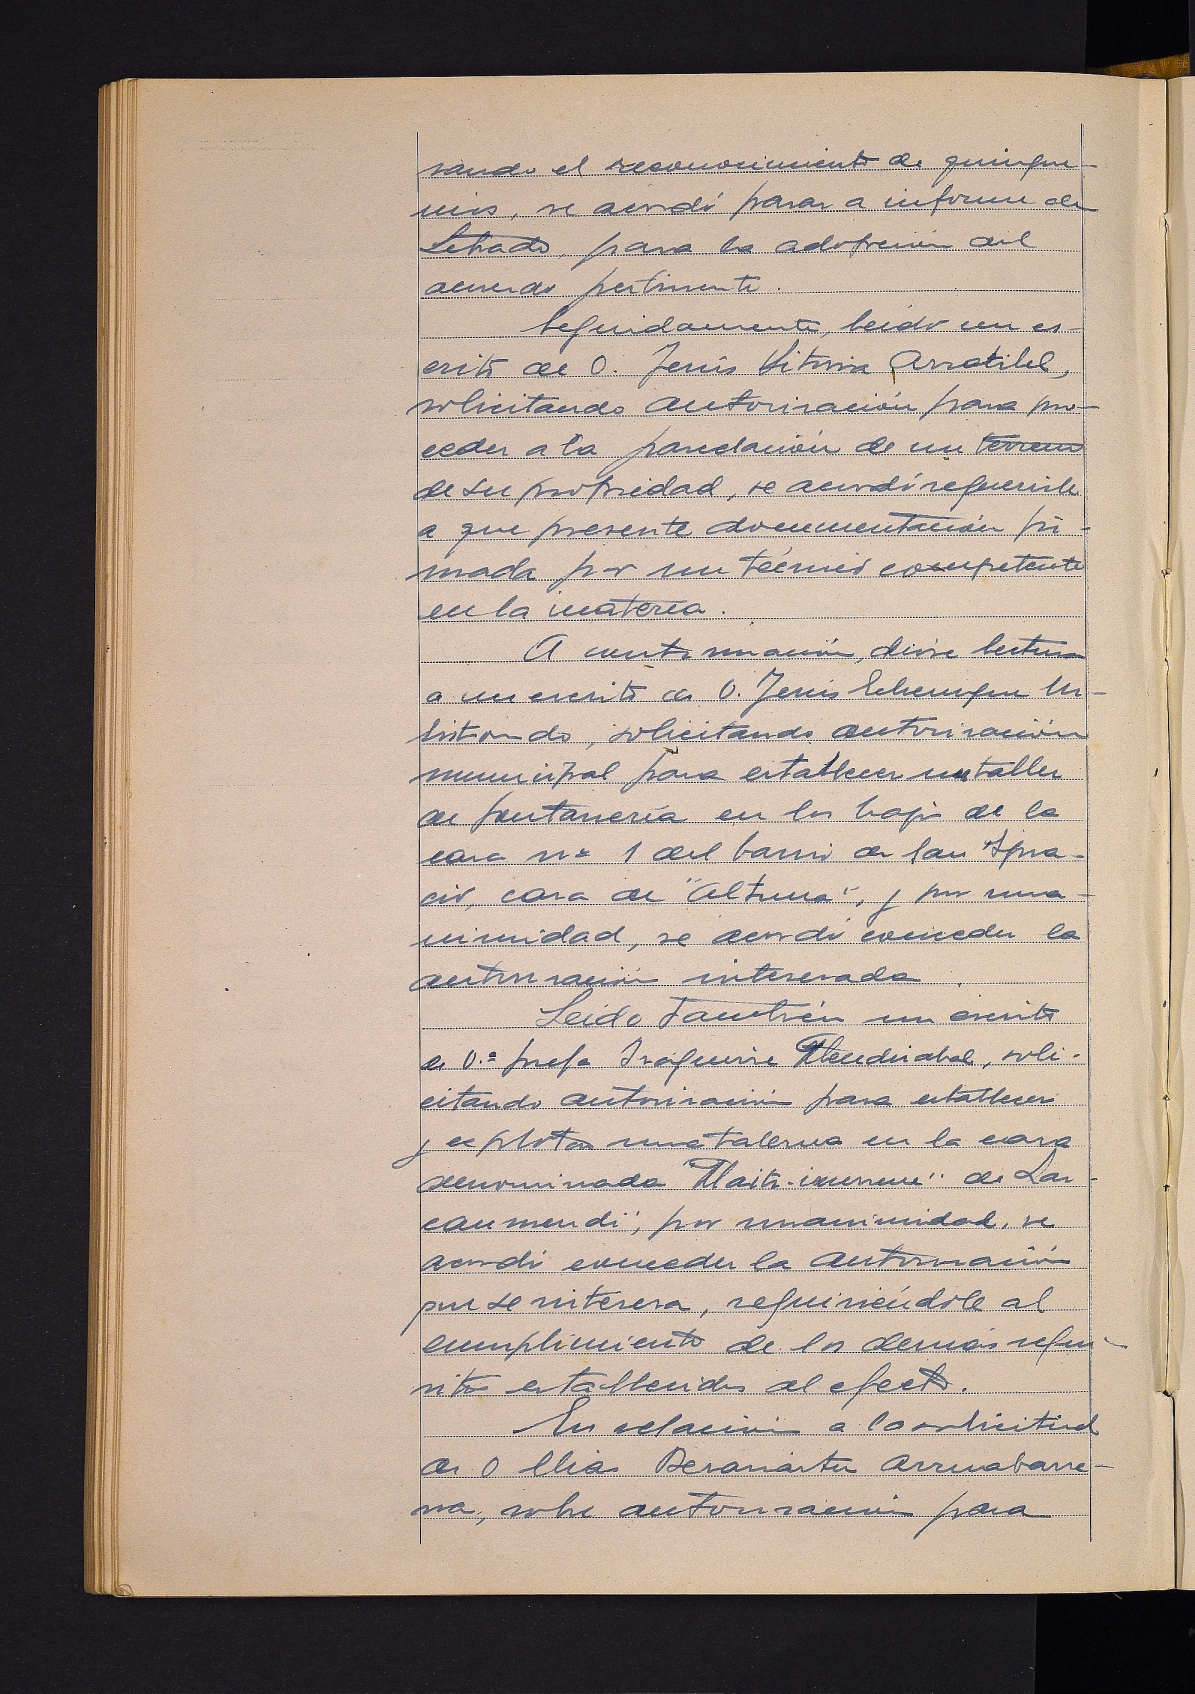 sando el reconocimiento de quinque-
nios, se acordó pasar a informe de
Letrado, para la adopción del
acuerdo pertinente.
Seguidamente, leido un es-
crito de D. Jesús Vitoria Arratibel,
solicitando autorización para pro-
ceder a la parcelación de un terreno
de su propiedad, se acordó requerirle
a que presente documentación fir-
mada por un técnico competente
en la materia.
A continuación, dióse lectura
a un escrito de D. Jesús Ur-
solicitando autorización
municipal para establecer un taller
de fontanería en los bajos de la
casa nº 1 del barrio de San Igna-
cio, casa de "Altuna", y por una-
nimidad, se acordó conceder la
autorización interesada
Leido también un escrito
de D.ª Josefa Izaguirre Mendizabal, soli-
citando autorización para establecer
y explotar una taberna en la casa
denominada de Laz-
caumendi, por unanimidad, se
acordó conceder la autorización
que se interesa, requiriéndole al
cumplimiento de los demás requi-
sitos establecidos al efecto.
En relación a la solicitud
de D Elias Berasiartu Arruabarre-
na, sobre autorización para